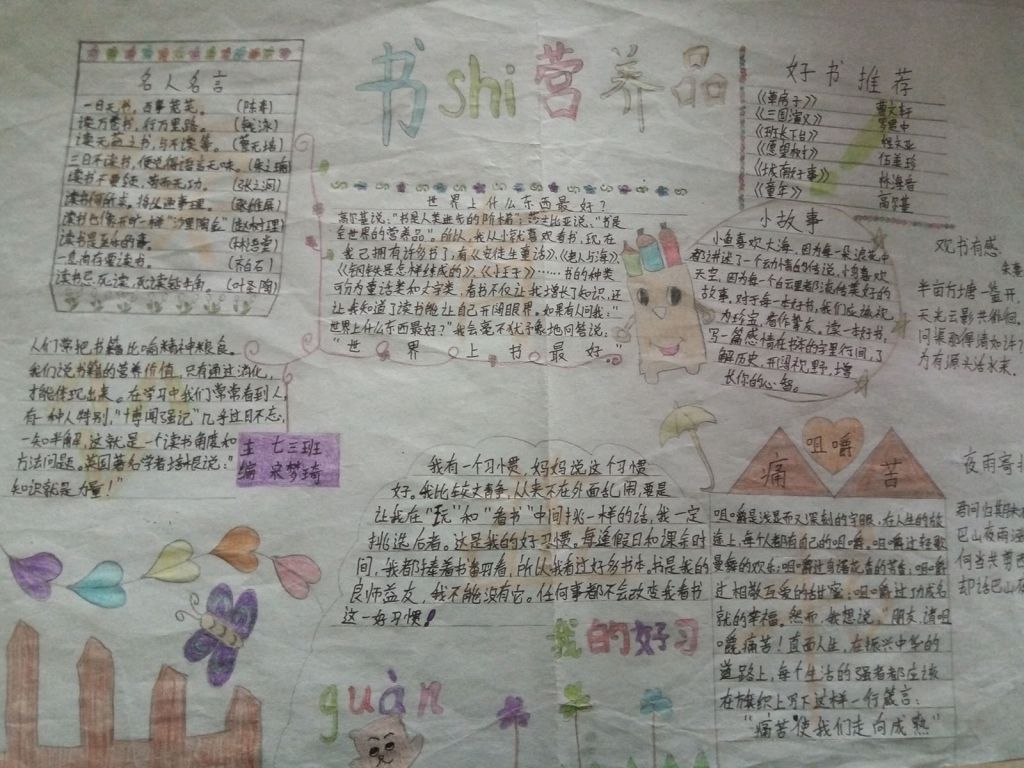 书shi营养品
名人名言
一日无书，百事荒芜。（陈寿）
读万卷书，行万里路。
读无益之书，与不读等。
三日不读书，便觉得语言无味。
读书不要钱，苦而无功。
读书是益体的事。
一息尚存要读书。
读书忌死读，死读钻牛角。（叶圣陶）
世界上什么东西最好？
高尔基说："书是人类进步的阶梯"；莎士比亚说："书是
全世界的营养品"。所以，我从小就喜欢看书，现在
我已拥有许多书了，有《安徒生童话》、《老人与海》、
《钢铁是怎样练成的》、《小王子》……书的种类
可分为童话类和文学类，看书不仅让我增长了知识，还
让我知道了读书能让自己开阔眼界。如果有人问我："
世界上什么东西最好？"我会毫不犹予地回答说：
"世界上书最好。"
好书推荐
《草房子》 曹文轩
《三国演义》
《班长下台》
《愿望树》 伍美珍
《城南旧事》 林海音
《童年》 高尔基
小故事
小鱼喜欢大海，因为每一朵浪花中
都讲述了一个动情的传说，小鸟喜欢
天空，因为每个白云里都流传美好的
故事，对于每一本好书，我们应该视
为珍宝，看作挚友。读一本好书，
写一篇感情在书本的字里行间，了
解历史，开阔视野，增
长你的心智。
观书有感
朱熹
半亩方塘一鉴开，
天光云影共徘徊。
问渠那得清如许？
为有源头活水来。
人们常把书籍比喻精神粮食。
我们说书籍的营养价值，只有通过消化，
才能体现出来。在学习中我们常常看到人，
有一种人特别，"博闻强记"几乎过目不忘，
一知半解，这就是一个读书角度和
方法问题。英国著名学者培根说："
知识就是力量！"
主 七三班
编 宋梦琦
我有一个习惯，妈妈说这个习惯
好。我比较文静，从来不在外面乱闹，要是
让我在"玩"和"看书"中间挑一样的话，我一定
挑选后者。这是我的好习惯。每逢假日和课余时
间，我都捧着书翻看，所以我看过好多书本，书是我的
良师益友，我不能没有它。任何事都不会改变我看书
这一好习惯！
我的好习
guàn
痛 咀嚼 苦
咀嚼是浅显而又深刻的字眼，在人生的旅
途上，每个人都有自己的咀嚼。咀嚼过轻歌
曼舞的欢乐；咀嚼过
过相敬互爱的甘蜜；咀嚼过功成名
就的幸福。然而，我想说："朋友，请咀
嚼痛苦！直面人生，在振兴中华的
道路上，每个生活的强者都应该
在旗帜上写下这样一行箴言：
"痛苦使我们走向成熟"
夜雨寄
君问归期未
巴山夜雨涨
何当共剪西
却话巴山